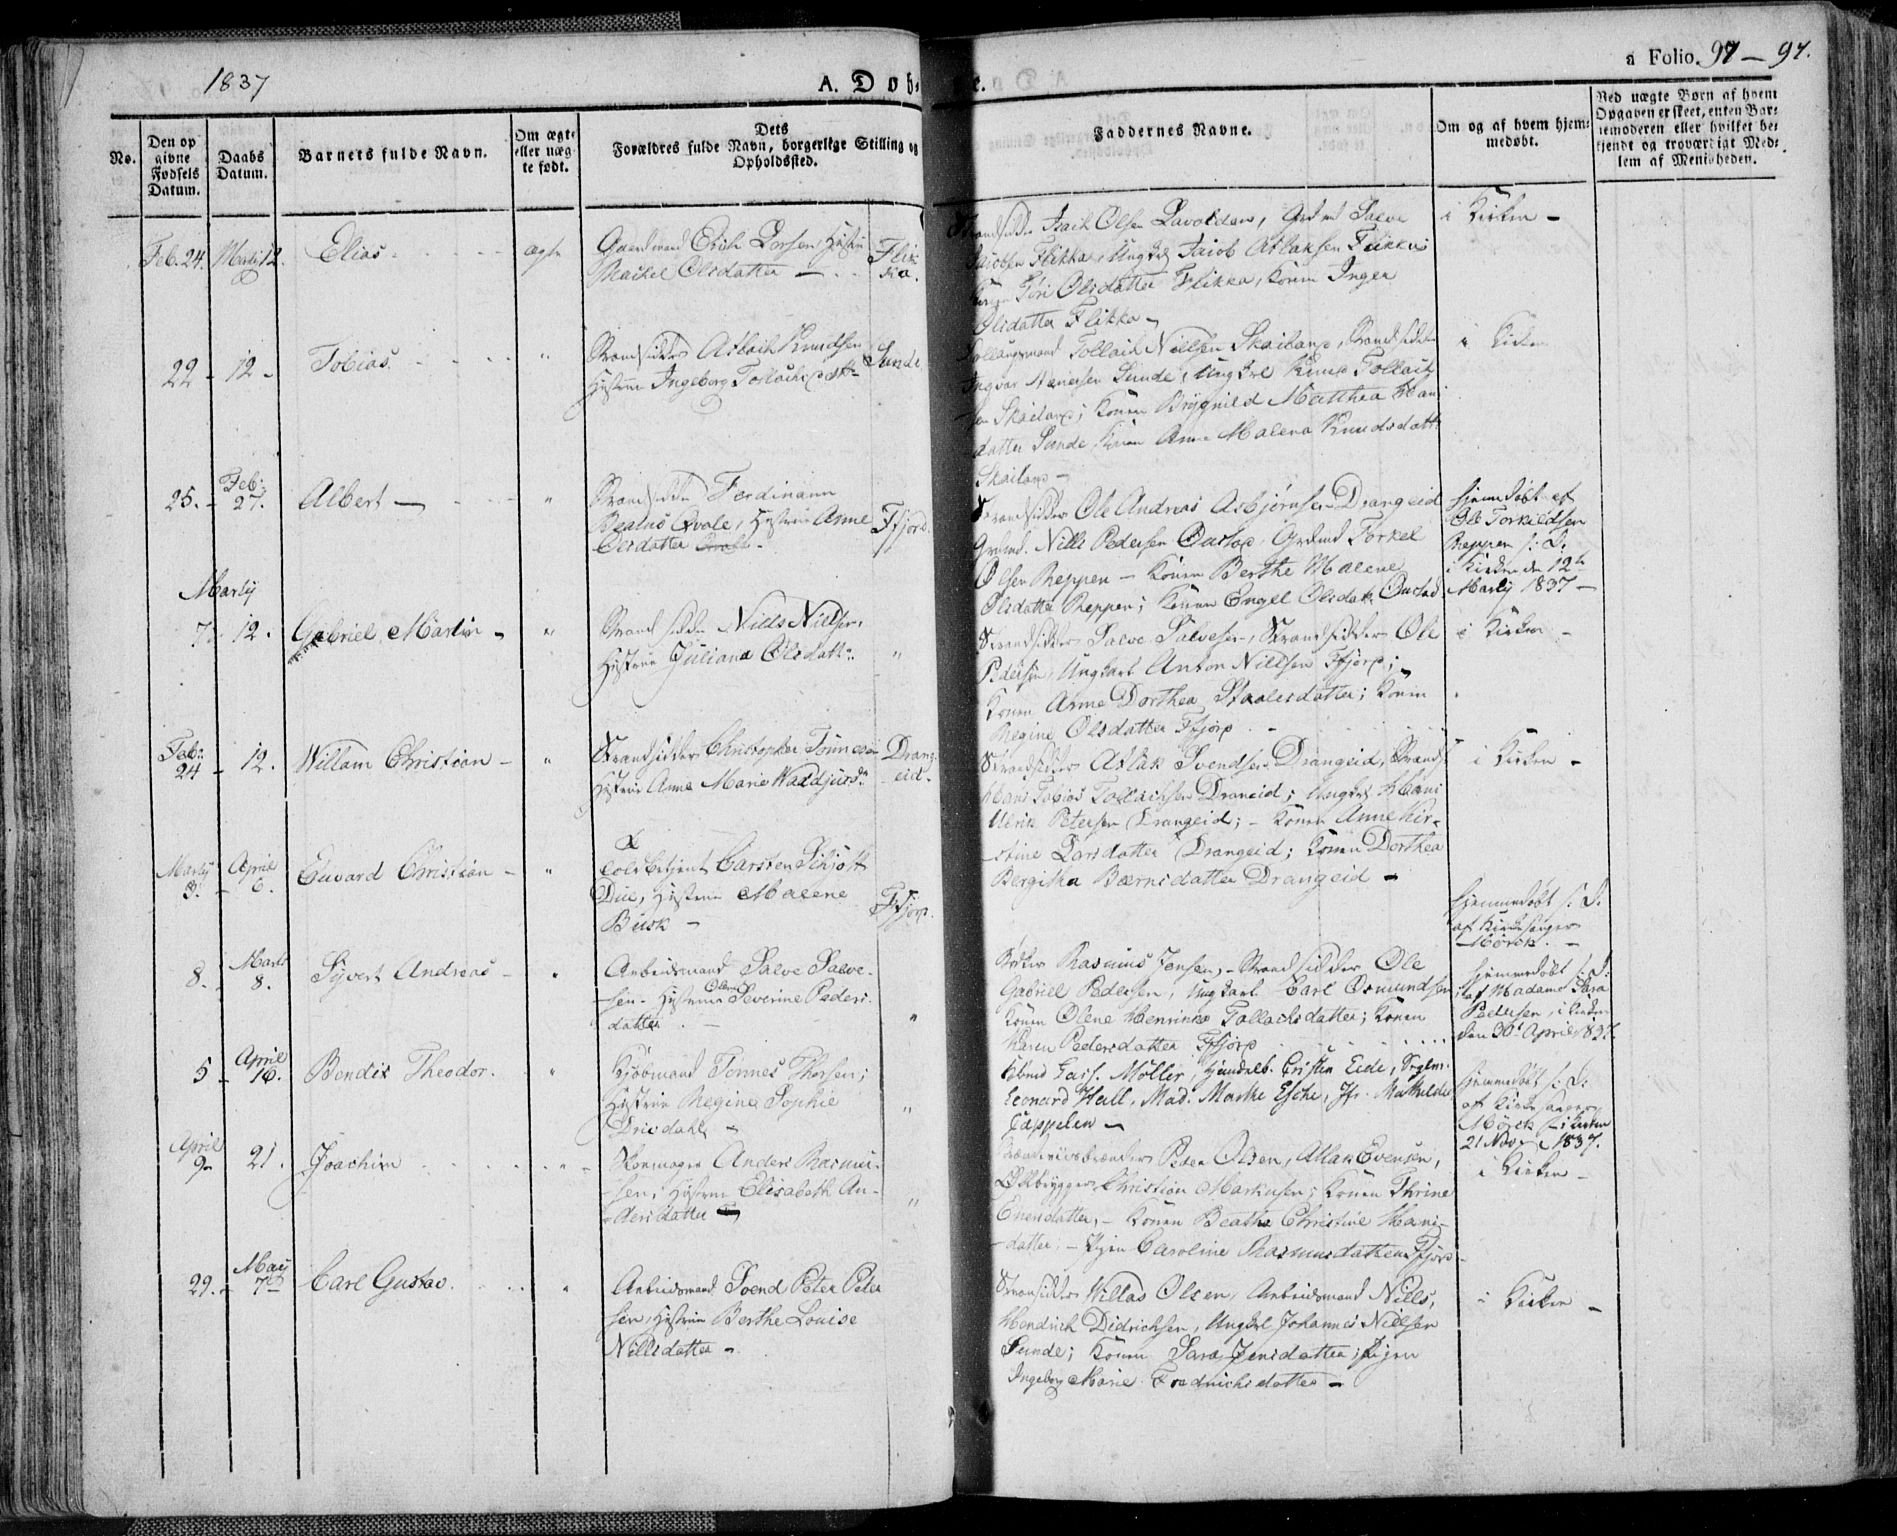 1837
A. Døbte.
a Folio. 97 — 97.
No.
Den opgivne Fødsels Datum.
Daabs Datum.
Barnets fulde Navn.
Om ægte eller uægte født.
Dets Forældres fulde Navn, borgerlige Stilling og Opholdssted.
Faddernes Navne.
Om og af hvem hjemmedøbt.
Ved uægte Børn af hvem Opgaven er skeet, enten Barnemoderen eller hvilket bekjendt og troværdigt Medlem af Menigheden.
Feb. 24. Martii 12. Elias ægte
Gaardmand Erich Larsen, Hustru
Rachel Olsdatter —
Flikka.
Strandsidder Isach Olsen Lavolden, Grdmd Salve
Jacobsen Flikka, Ungkrl Jacob Atlaksen Flikka
Konen Siri Olsdatter Flikka, Konen Inger
Olsdatter Flikka —
i Kirken —
22 - 12 - Tobias "
Strandsidder Asbach Knudsen
Hustrue Ingeborg Tollachsdttr
Sunde
Tollach Nielsen Skailand, Strandsidder
Ingvar Sunde, Ungkrl Knud Tollachsen
Skailand; Konen Brygnild Matthea Hansdatter
Sunde, Konen Anne Malena Knudsdatt:
Skailand —
i Kirken
25. - Feb: 27. Albert — "
Strandsidder Ferdinann
Beatus Qvale, Hustrue Anne
Olsdatter Qvale -
Ffjord.
Strandsidder Ole Andreas Asbjørnsen Drangeid
Grdmd. Nills Pedersen Oustad, Grdmd Torkel
Olsen Reppen — Konen Berthe Malene
Olsdatter Reppen; Konen Engel Olsdatt. Oustad
hjemmedøbt af
Ole Torkildsen
Reppen s: D:
i Kirken den 12te
Martij 1837 —
Martij
7. - 12. Gabriel Martin - "
Strandsidder Niels Nillsen,
Hustrue Juliana Olsdattr.
"
Strandsidder Salve Salvesen, Strandsidder Ole
Pedersen, Ungkarl Anton Nillsen Ffjord;
Konen Anne Dorthea Staalesdatter; Konen
Regine Olsdatter Ffjord
i Kirken -
Feb: 24 - 12. Willam Christian - "
Strandsidder Christopher Tønnesen
Hustrue Anne Marie
Drangeid -
Strandsidder Atlak Svendsen Drangeid, Strands
Hans Tobias Tollachsen Drangeid; Ungkrl Hans
Ulrik Petersen Drangeid; - Konen Anne Kirstine
Larsdatter Drangeid; Konen Dorthea
Bergitha Bærnsdatter Drangeid -
i Kirken -
Martij 3. - April 6. Eduard Christian - "
Toldbetjent Carsten Schiøtt
Due, Hustrue Malene
Busk —
Ffjord.
hjemmedøbt s: D:
af Kirkesanger
Mörck. —
8. - Marts 8. Sÿvert Andreas - "
Arbeidsmand Salve Salvesen
- Hustrue Severine Pedersdatter
"
Bødker Rasmus Jensen, - Strandsidder Ole
Gabriel Pedersen, Ungkarl Carl Osmundsen
Konen Olene Henrikka Tollachsdatter; Konen
Karen Pedersdatter Ffjord
hjemmedøbt s: D:
af Madame Sara
Pedersen, i Kirken
den 30t April 1837.
5 - April 16. Bendix Theodor. "
Kjöbmand Tönnes Thorsen;
Hustrue Regine Sophie
Driedahl —
"
Kbmd Møller, Handelsb. Cristen Eide,
Leonard Hall, Mad. Marthe Esche, Jfr. Mathilde
Cappelen —
hjemmedøbt s: D:
af Kirkesanger
Mörck - i Kirken
21 Novr 1837.
April 9 - 21. Joachim
Skomager Anders Rasmussen,
Hustrue Elisabeth Andersdatter
"
Brændevinsbrænder Peder Olsen, Atlak Evensen,
Ølbrygger Christian Markusen; Konen Thrine
datter, - Konen Beathe Christine Hansdatter;
- Pigen Caroline Rasmusdatter Ffjord
i Kirken -
29. - May 7de Carl Gustav. "
Arbeidsmand Svend Peter Petersen,
Hustrue Berthe Louise
Nillsdatter -
Strandsidder Willas Olsen, Arbeidsmand Nills,
Hendrich Didrichsen, Ungkrl Johannes Nielsen
Sunde; Konen Sara Jensdatter; Pigen
Ingeborg Marie Fredrichsdatter —
i Kirken -